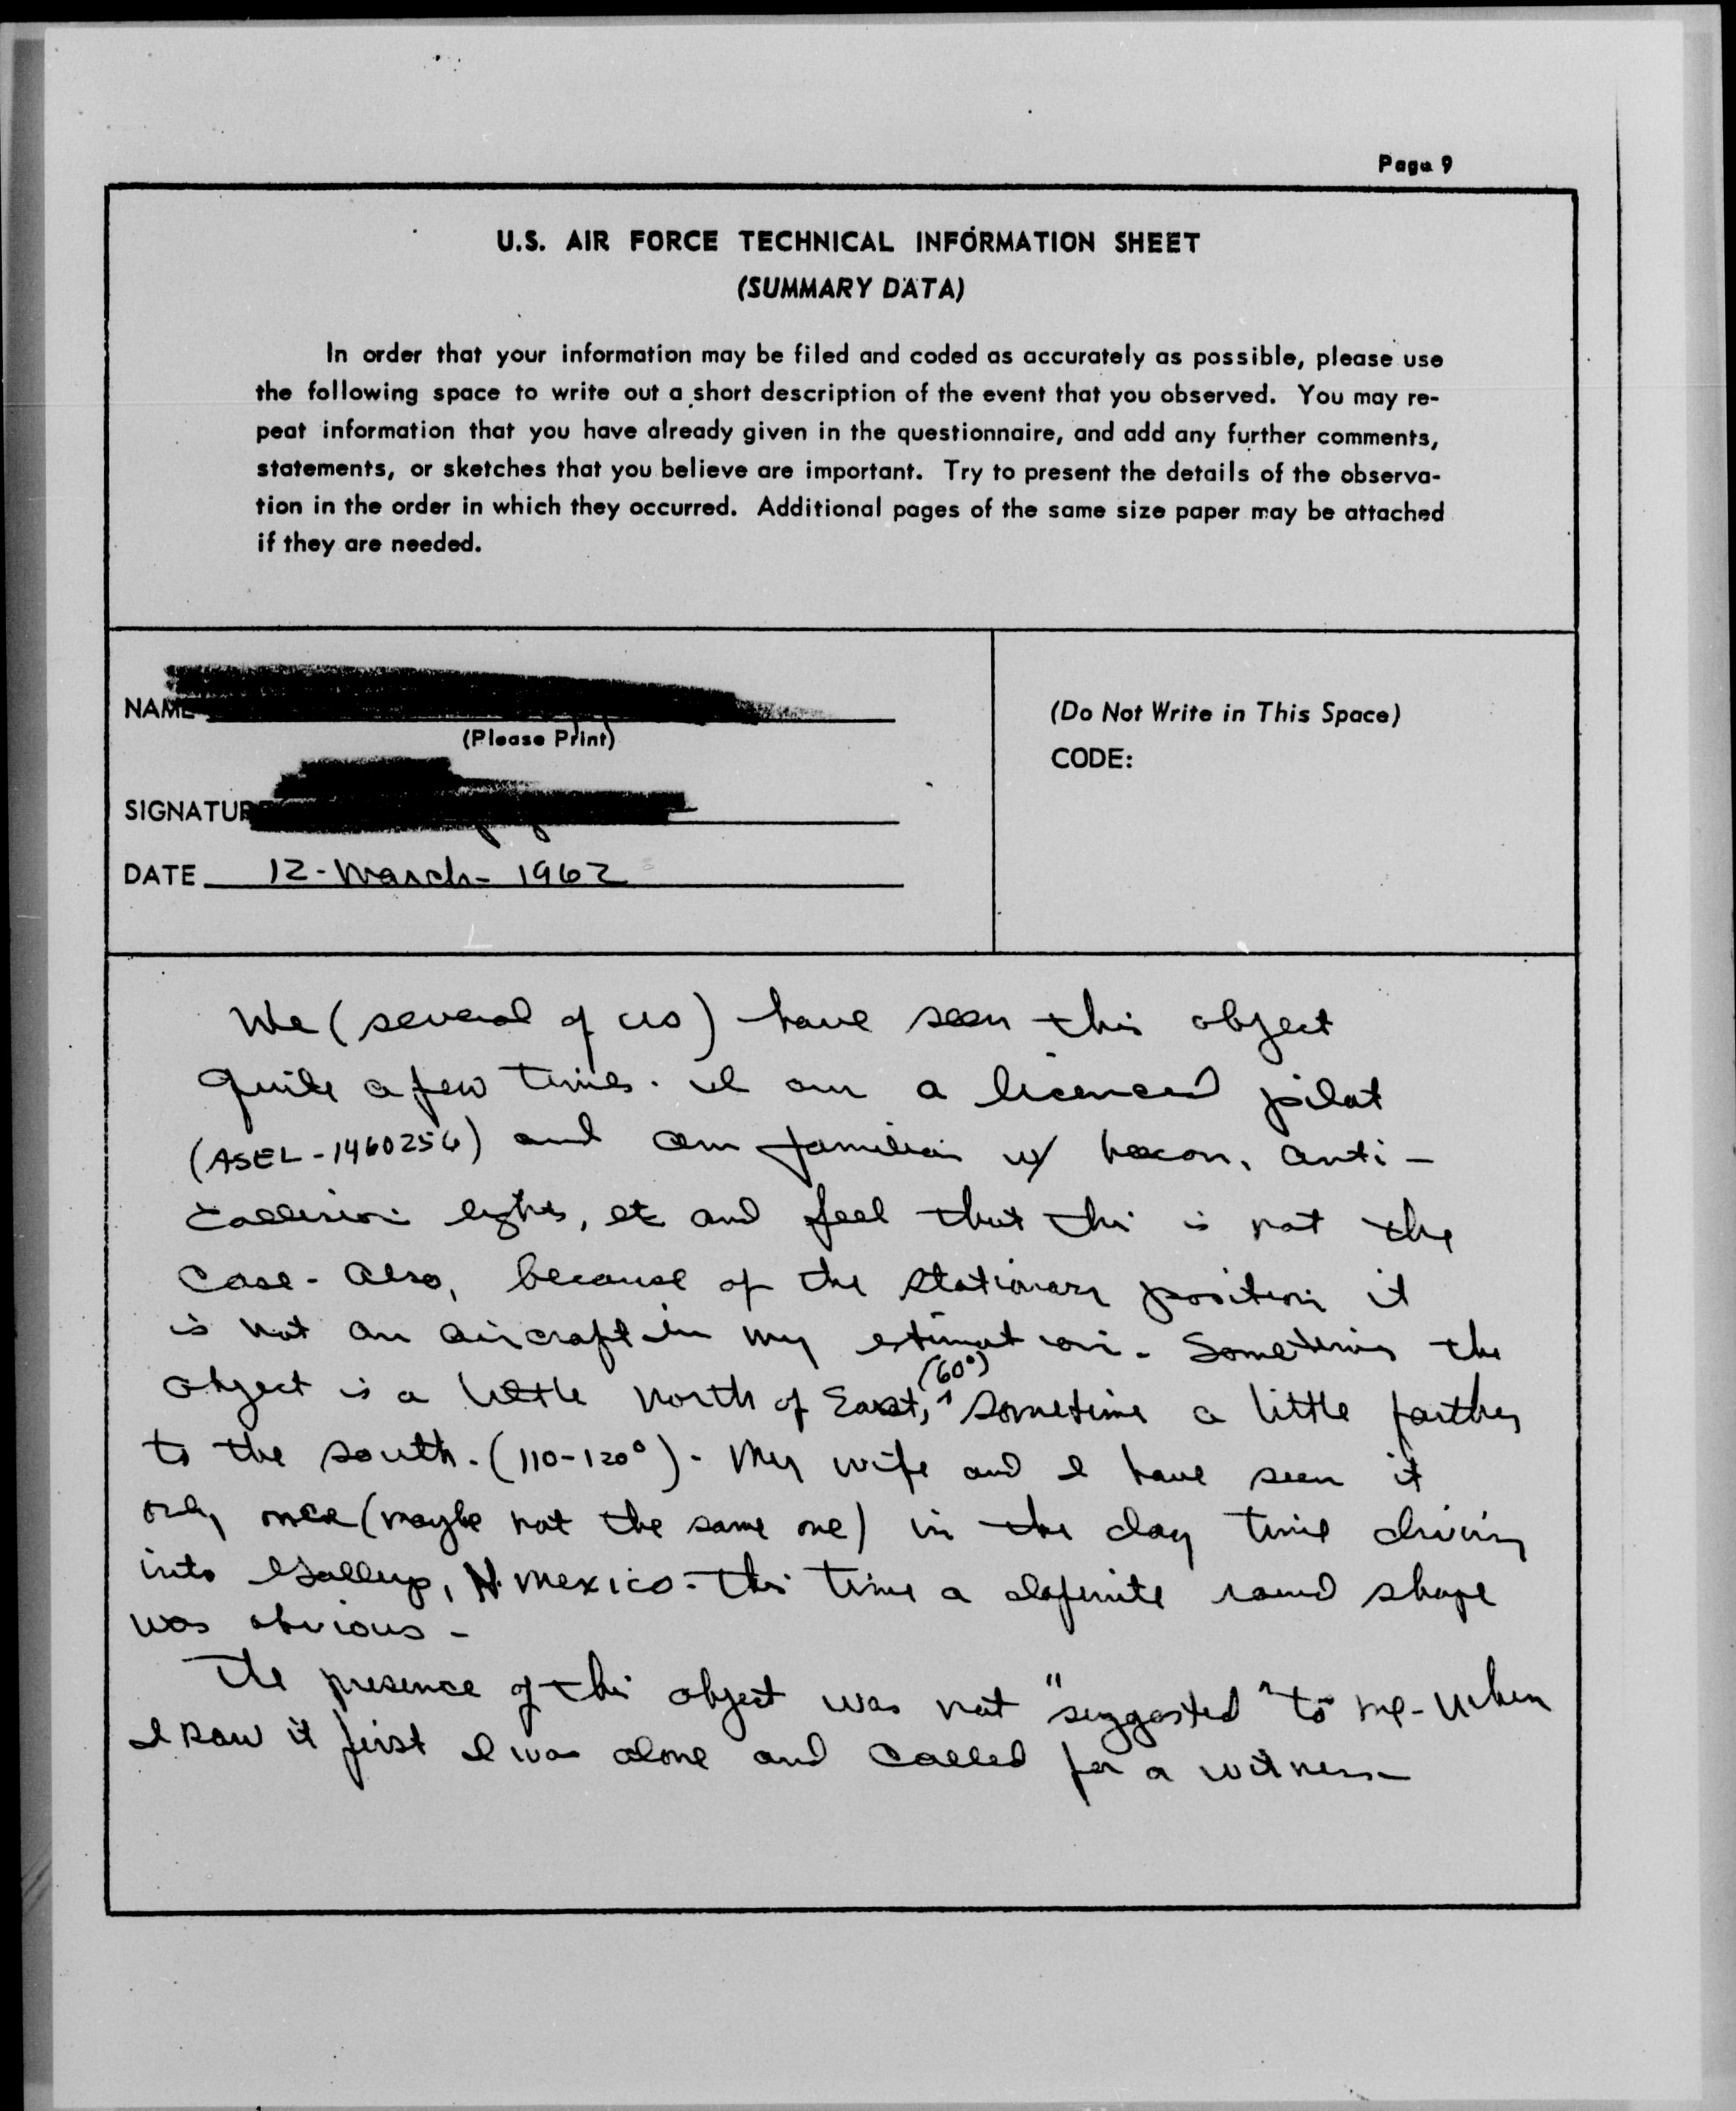 Page 9
U.S. AIR FORCE TECHNICAL INFORMATION SHEET
(SUMMARY DATA)
In order that your information may be filed and coded as accurately as possible, please use
the following space to write out a short description of the event that you observed. You may re-
peat information that you have already given in the questionnaire, and add any further comments,
statements, or sketches that you believe are important. Try to present the details of the observa-
tion in the order in which they occurred. Additional pages of the same size paper may be attached
if they are needed.
NAME
(Please Print)
(Do Not Write in This Space)
CODE:
SIGNATURE
DATE 12-March-1962
We (several of us) have seen this object
quite a few times. I am a licenced pilot
(ASEL-1460256) and am familiar w/ beacon, anti-
collision lights, etc and feel that this is not the
case. Also, because of the stationary position it
is not an aircraft in my estimation. Sometimes the
(60°)
object is a little north of East, sometime a little farther
to the south. (110-120°). My wife and I have seen it
only once (maybe not the same one) in the day time driving
into Gallup, N. Mexico. This time a definite round shape
was obvious -
The presence of this object was not "suggested" to me - When
I saw it first I was alone and called for a witness -